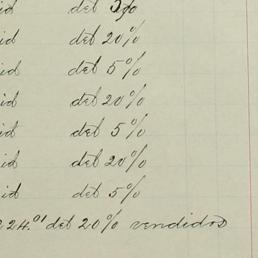 id del 5%
id del 20%
id del 5%
id del 20%
id del 5%
id del 20%
id del 5%
224.01 del 20% vendidos